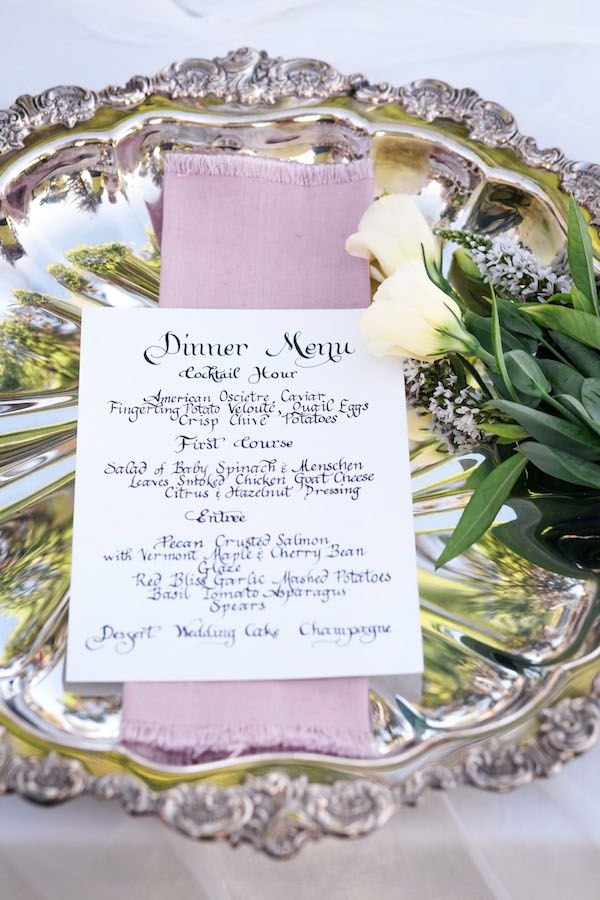 Dinner Menu
Cocktail Hour
American Oscietre Caviar
Fingerting Potato Velouté, Quail Eggs
Crisp Chive Potatoes
First Course
Salad of Baby Spinach & Menschen
Leaves Smoked Chicken Goat Cheese
Citrus & Hazelnut Dressing
Entree
Pecan Crusted Salmon
with Vermont Maple & Cherry Bean
Glaze
Red Bliss Garlic Mashed Potatoes
Basil Tomato Asparagus
Spears
Dessert Wedding Cake Champagne